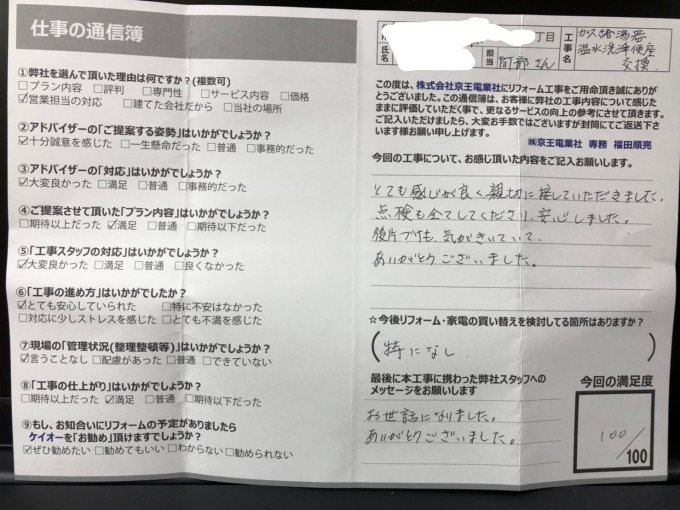 仕事の通信簿
①弊社を選んで頂いた理由は何ですか?(複数可)
□プラン内容 □評判 □専門性 □サービス内容 □価格
☑営業担当の対応 □建てた会社だから □当社の場所
②アドバイザーの「ご提案する姿勢」はいかがでしょうか?
☑十分誠意を感じた □一生懸命だった □普通 □事務的だった
③アドバイザーの「対応」はいかがでしょうか?
☑大変良かった □満足 □普通 □事務的だった
④ご提案させて頂いた「プラン内容」はいかがでしょうか?
□期待以上だった ☑満足 □普通 □期待以下だった
⑤「工事スタッフの対応」はいかがでしょうか?
☑大変良かった □満足 □普通 □良くなかった
⑥「工事の進め方」はいかがでしたか?
☑とても安心していられた □特に不安はなかった
□対応に少しストレスを感じた □とても不満を感じた
⑦現場の「管理状況(整理整頓等)」はいかがでしょうか?
☑言うことなし □配慮があった □普通 □できていない
⑧「工事の仕上がり」はいかがでしょうか?
□期待以上だった ☑満足 □普通 □期待以下だった
⑨もし、お知合いにリフォームの予定がありましたら
ケイオーを「お勧め」頂けますでしょうか?
☑ぜひ勧めたい □勧めてもいい □わからない □勧められない
丁目
氏名
担当
さん
工事名
ガス給湯器
温水洗浄便座
交換
この度は、株式会社京王電業社にリフォーム工事をご用命頂き誠にあり
がとうございました。この通信簿は、お客様に弊社の工事内容について感じた
ままに評価していただく事で、更なるサービスの向上の参考にさせて頂きます。
ご記入いただけましたら、大変お手数ではございますが封筒にてご返送下さ
います様お願い申し上げます。
㈱京王電業社 専務 福田順亮
今回の工事について、お感じ頂いた内容をご記入お願いします。
とても感じが良く親切に接していただきました。
点検も全てしてくださり、安心しました。
後片づけも、気がきいていて、
ありがとうございました。
☆今後リフォーム・家電の買い替えを検討してる箇所はありますか?
(特になし)
最後に本工事に携わった弊社スタッフへの
メッセージをお願いします
お世話になりました。
ありがとうございました。
今回の満足度
100/100